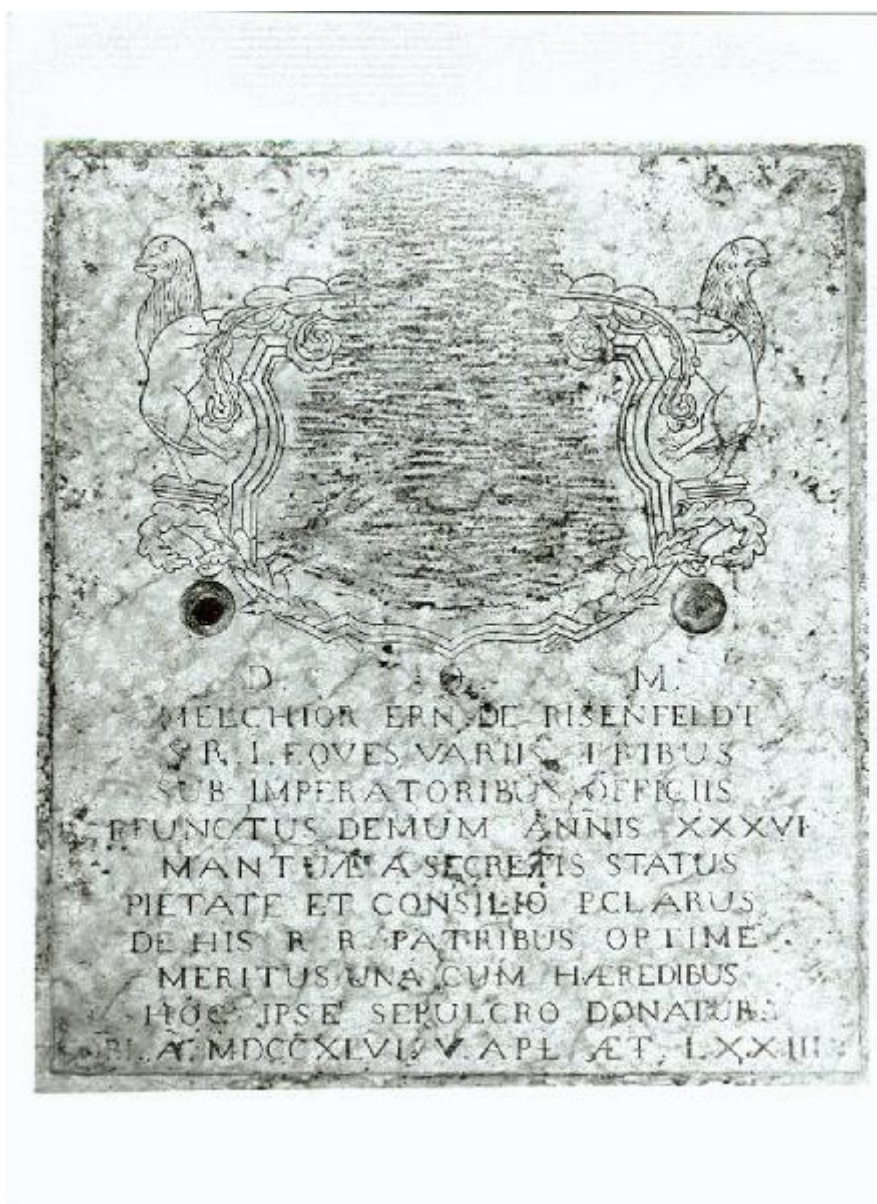 D. O. M.
MELCHIOR ERN. DE RISENFELDT
S. R. I. EQVES VARIIS TRIBUS
SUB IMPERATORIBUS OFFICIIS
EFUNCTUS DEMUM ANNIS XXXVI
MANTUÆ A SECRETIS STATUS
PIETATE ET CONSILIO PCLARUS
DE HIS R R PATRIBUS OPTIME
MERITUS UNA CUM HÆREDIBUS
HOC IPSE SEPULCRO DONATUR
A. MDCCXLVI. V. APL. ÆT. LXXIII